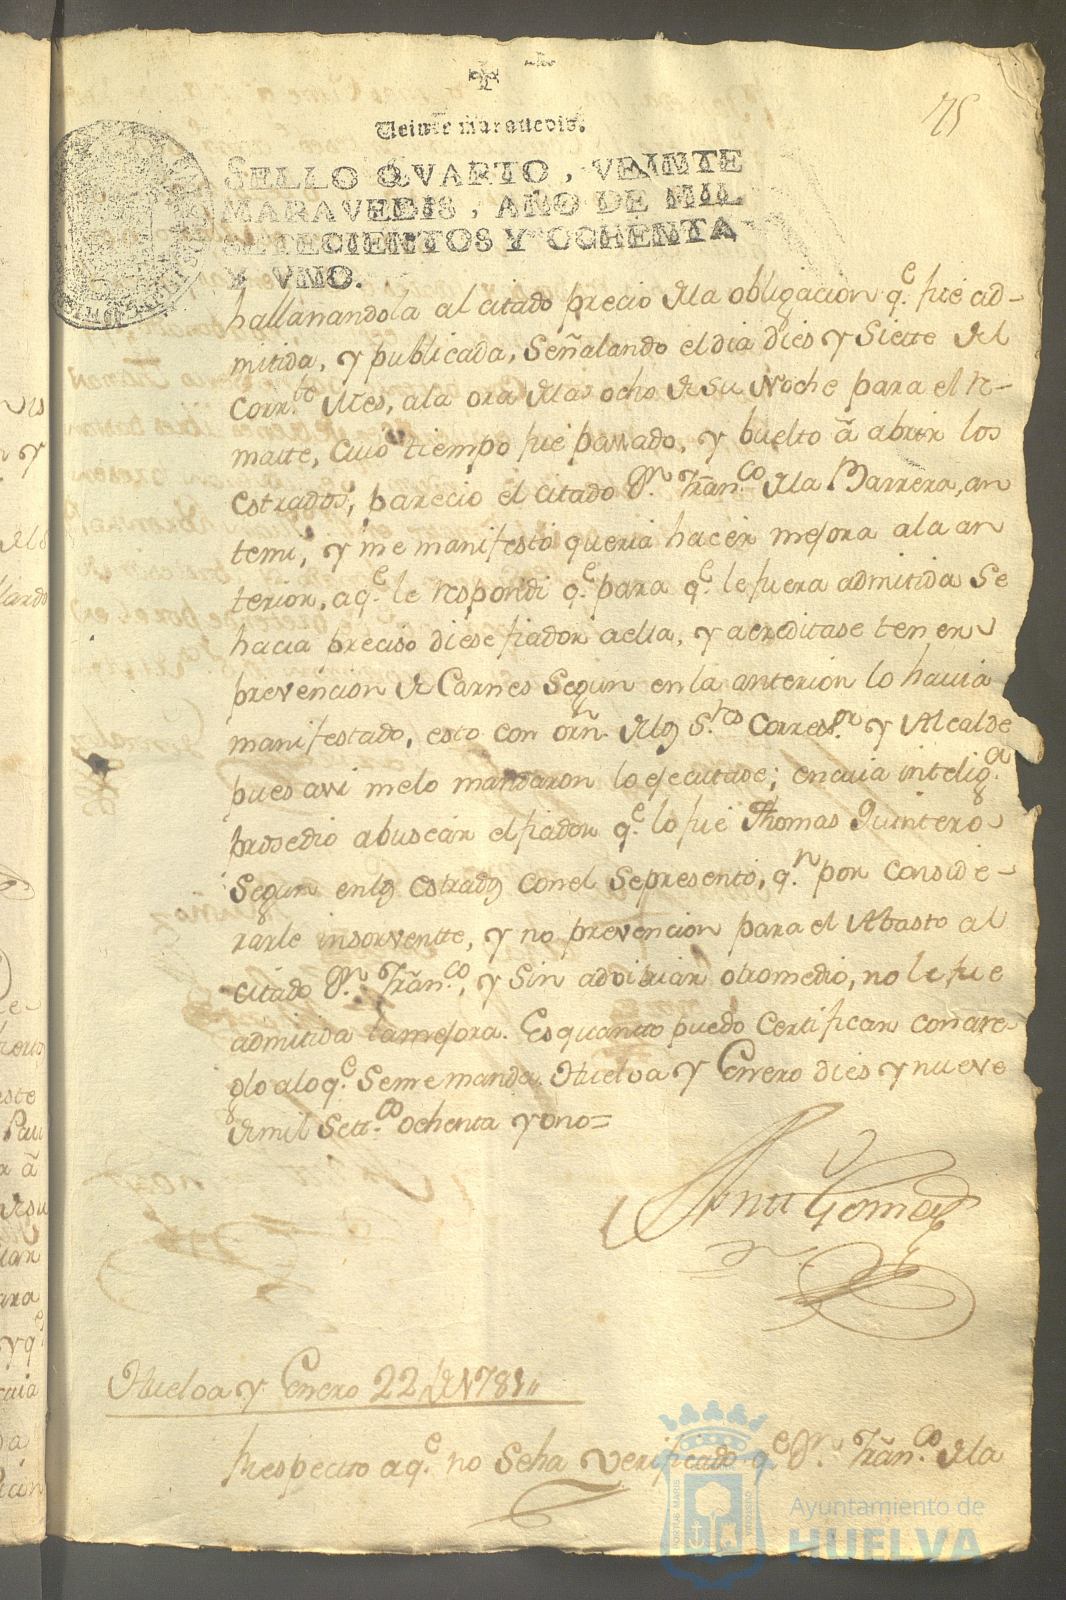 75
Veinte maravedis.
SELLO QVARTO, VEINTE
MARAVEDIS, AÑO DE MIL
SETECIENTOS Y OCHENTA
Y VNO.
hallanandola al citado precio dla obligacion q.e fue ad-
mitida, y publicada, Señalando el dia dies y Siette del
Corr.te Mes, ala ora dlas ocho de su Noche para el re-
matte, cuio tiempo fue passado, y buelto â abrir los
estrados, parecio el citado D.n Fran.co dla Barrera, an
temi, y me manifesto queria hacer mejora ala an
terior, aq.e le respondi q.e para q.e le fuera admitida Se
hacia preciso diese fiador aella, y acreditase tener
prevencion de Carnes Segun en la anterior lo havia
manifestado, esto con orn. dlos S.res Corres.or y Alcalde
pues assi melo mandaron lo ejecutase; encuia intelig.a
prosedio abuscar el fiador q.e lo fue Thomas Quintero
Segun enlos estrados conel Sepresento, q.n por conside-
rarle insorvente, y no prevencion para el Abasto al
citado D.n Fran.co, y Sin advitriar otromedio, no le fue
admitida lamejora. Es quanto puedo Certificar conarre-
glo aloq.e Seme manda. Huelva y Enero dies y nueve
de mil Sett.os ochenta y uno=
Ant.o Gomez
Huelva y Enero 22 de 1781,,
Respecto aq.e no Seha verificado q.e D.n Fran.co dla
PORTUS MARIS
ET TERRAE CUSTODIA
Ayuntamiento de
HUELVA